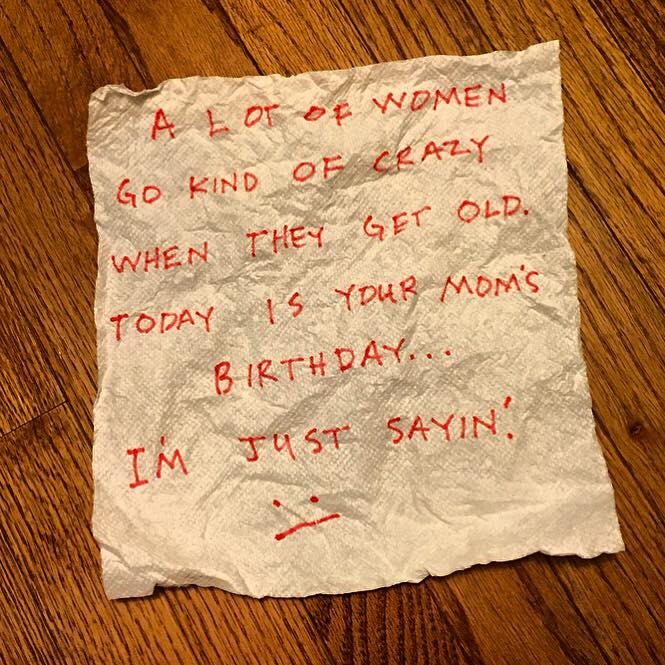 A LOT OF WOMEN
GO KIND OF CRAZY
WHEN THEY GET OLD.
TODAY IS YOUR MOM'S
BIRTHDAY...
I'M JUST SAYIN'.